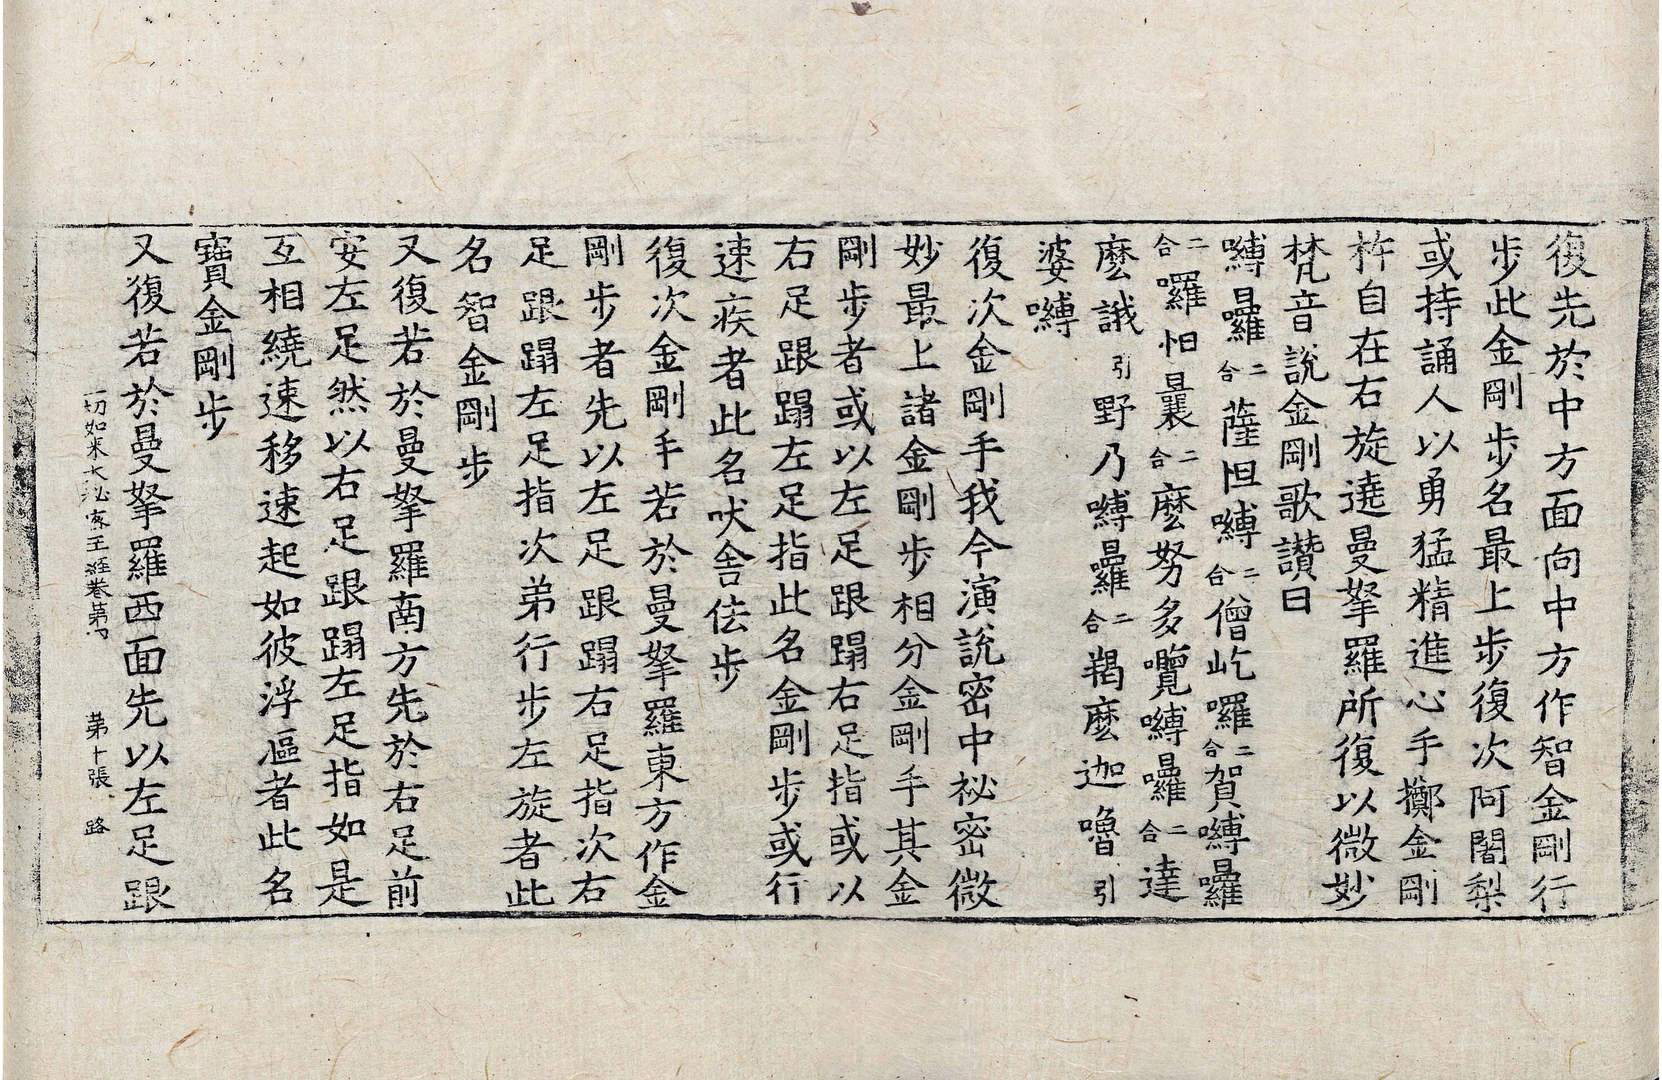 復先於中方面向中方作智金剛行
步此金剛步名最上步復次阿闍梨
或持誦人以勇猛精進心手擲金剛
杵自在右旋遶曼拏羅所復以微妙
梵音說金剛歌讚曰
嚩曩二合薩怛嚩二合僧屹囉二合賀嚩曩
二合囉怛曩二合麼努多囕嚩曩二合達
麼誐引野乃嚩曩二合羯麼迦嚕引
婆嚩
復次金剛手我今演說密中祕密微
妙最上諸金剛步相分金剛手其金
剛步者或以左足跟蹋右足指或以
右足跟蹋左足指此名金剛步或行
速疾者此名吠舍佉步
復次金剛手若於曼拏羅東方作金
剛步者先以左足跟蹋右足指次右
足跟蹋左足指次弟行步左旋者此
名智金剛步
又復若於曼拏羅南方先於右足前
安左足然以右足跟蹋左足指如是
互相繞速移速起如彼浮傴者此名
寶金剛步
一切如來大祕密王經卷第四 第十張 路
又復若於曼拏羅西面先以左足跟